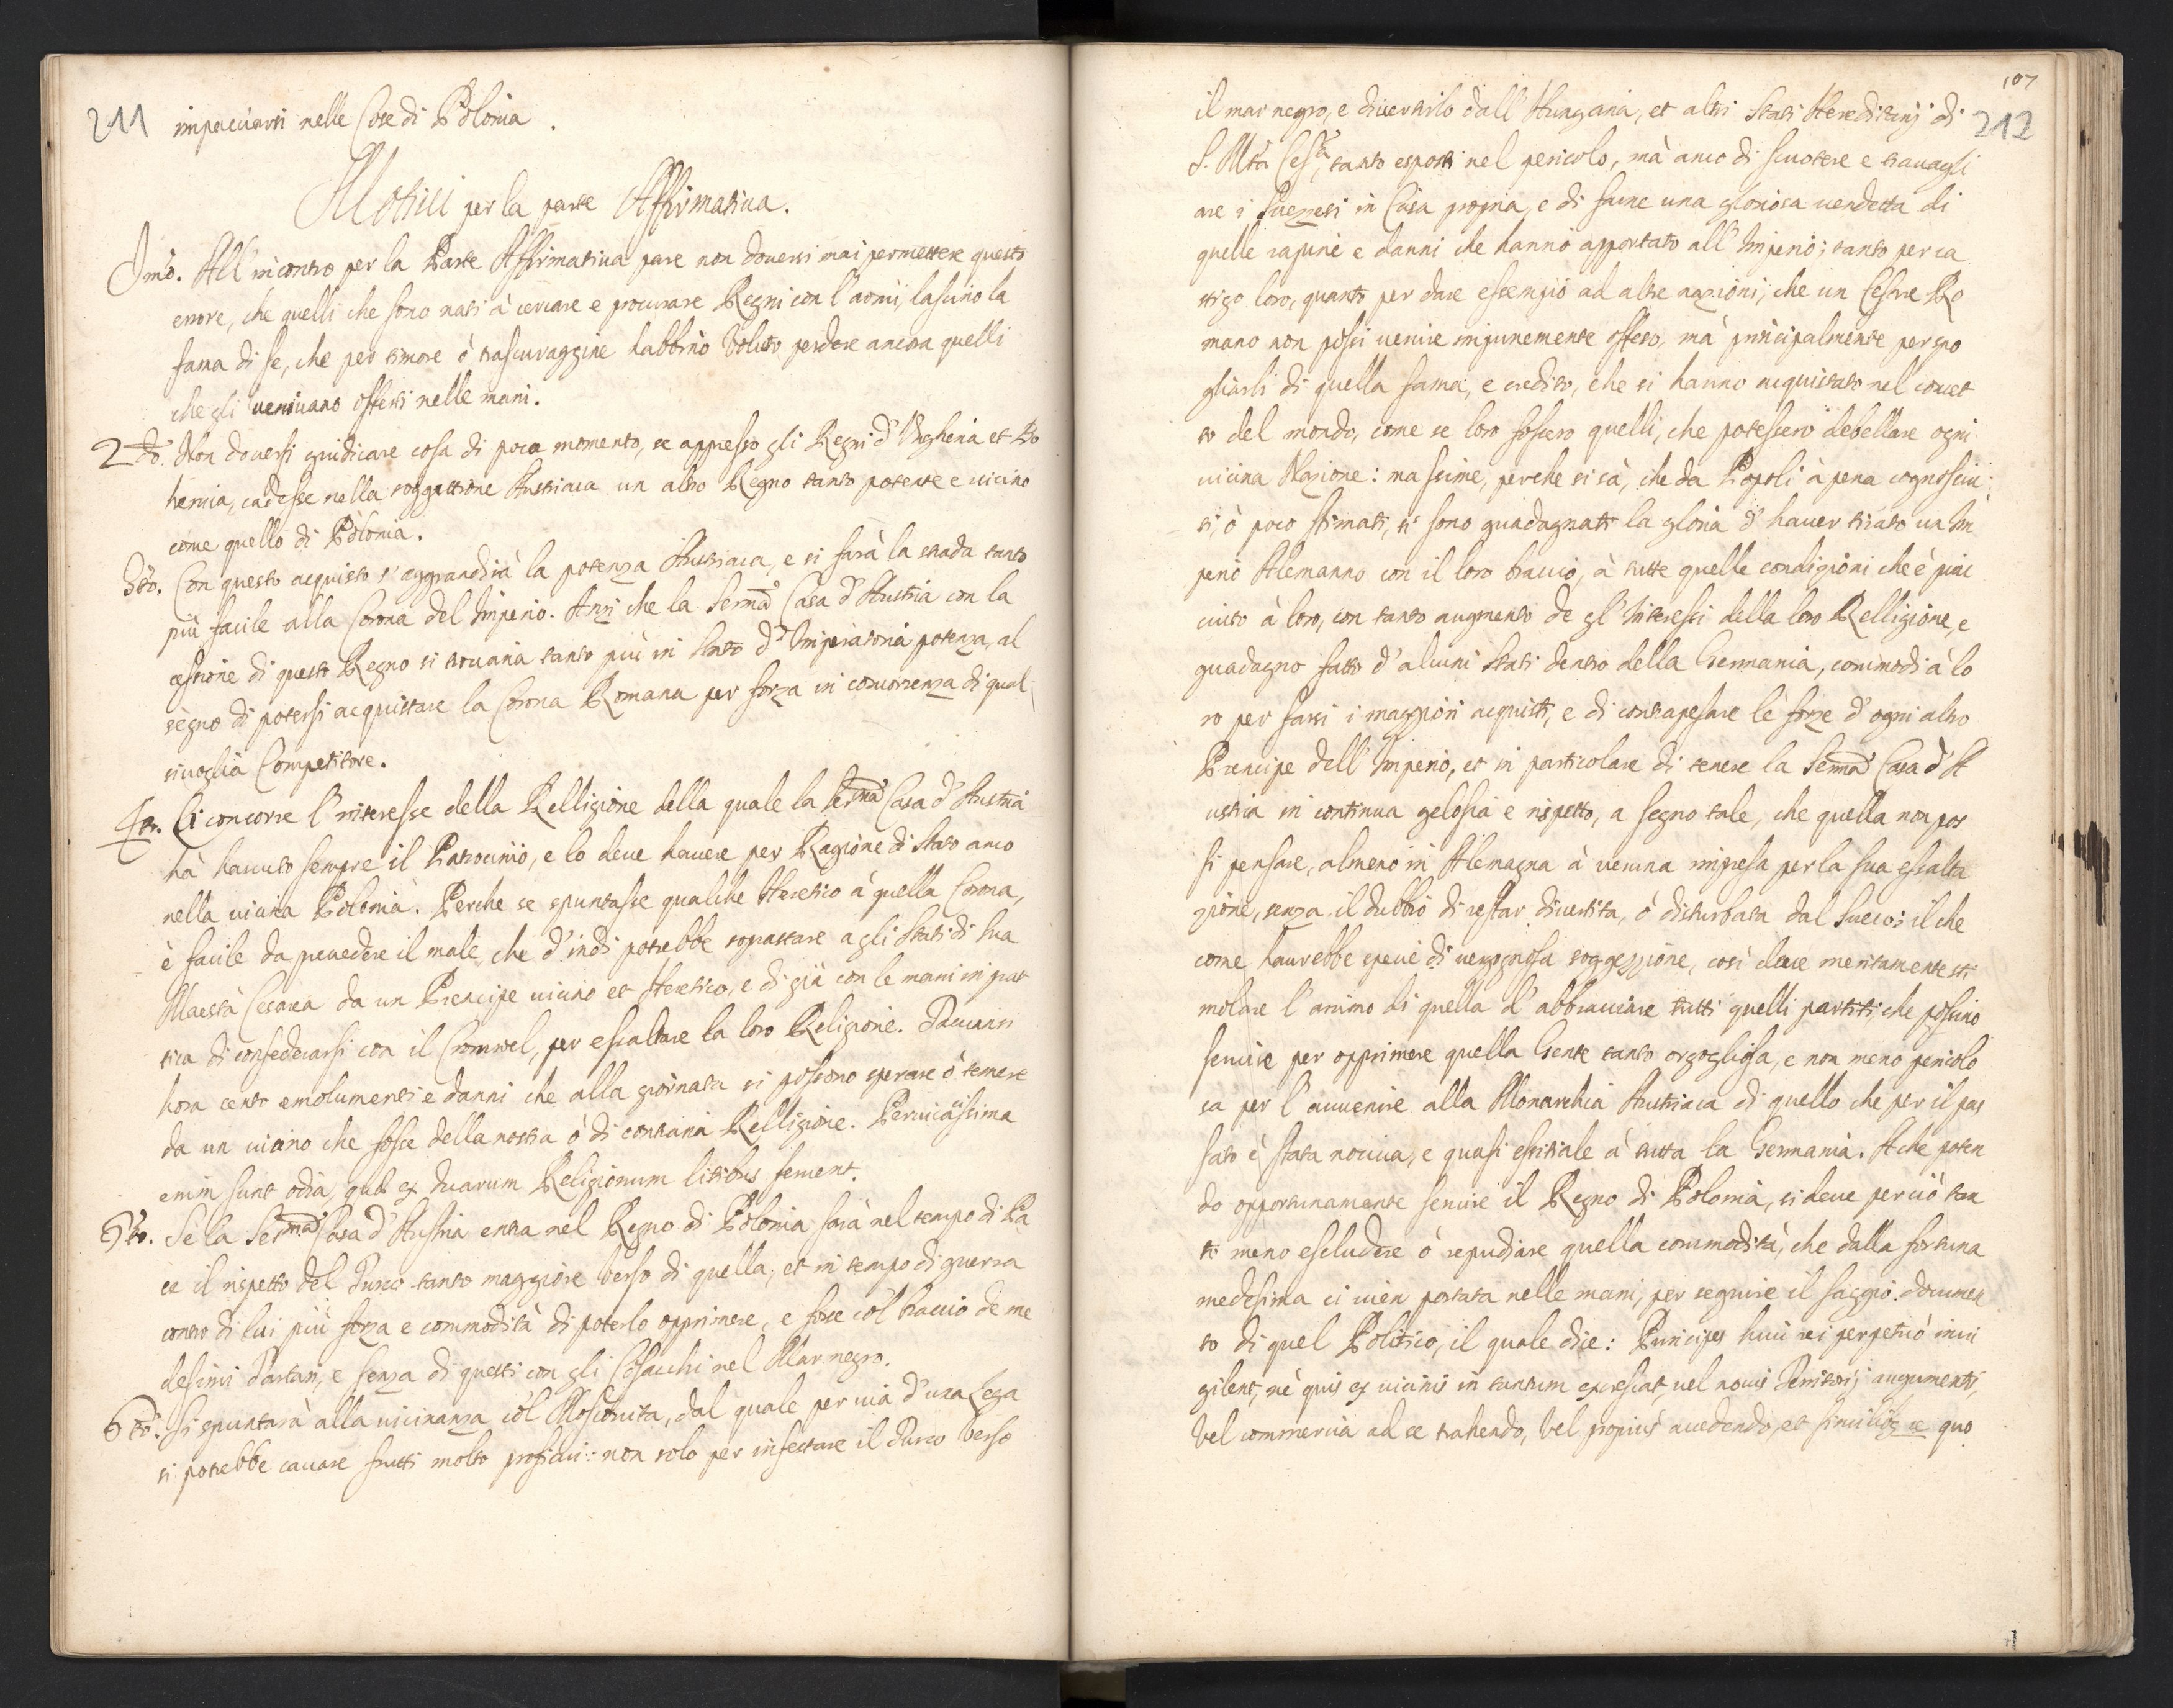 211
impacciarsi nelle Cose di Polonia.
Motivi per la parte Affirmativa.
Imo. All' incontro per la Parte Affirmativa pare non doversi mai permettere questo
errore, che quelli che sono nati à cercare e procurare Regni con l'armi, lascino la
fama di se, che per timore ò trascuraggine habbino voluto perdere ancora quelli
che gli venivano offerti nelle mani.
2do. Non doversi giudicare cosa di poco momento, se appresso gli Regni d'Ungheria et Bo
hemia, cadesse nella soggettione Austriaca un altro Regno tanto potente e vicino
come quello di Polonia.
3tio. Con questo acquisto s'aggrandirà la potenza Austriaca, e si farà la strada tanto
più facile alla Corona del Imperio. Anzi che la Serma Casa d'Austria con la
cessione di questo Regno si trovaria tanto più in stato d'Imperatoria potenza, al
segno di potersi acquistare la Corona Romana per forza in concorrenza di qual
sivoglia Competitore.
4to. Ci concorre l'interesse della Relligione della quale la Serma Casa d'Austria
hà havuto sempre il Patrocinio, e lo deve havere per Ragione di Stato anco
nella vicina Polonia. Perche se spuntasse qualche Heretico à quella Corona,
è facile da prevedere il male, che d'indi potrebbe soprastare agli Stati di Sua
Maestà Cesarea da un Prencipe vicino et Heretico, e di già con le mani in prat
tica di confederarsi con il Cromwel, per essaltare la loro Religione. Tacciansi
hora cento emolumenti e danni che alla giornata si possono sperare ò temere
da un vicino che fosse della nostra ò di contraria Relligione. Pernicissima
enim sunt odia, quae ex duarum Religionum litibus fiement.
5to. Se la Serma Casa d'Austria entra nel Regno di Polonia sarà nel tempo di Pa
ce il rispetto del Turco tanto maggiore verso di quella, et in tempo di guerra
contro di lui più forza e commodità di poterlo opprimere, e forse col braccio de me
desimi Tartari, e senza di questi con gli Cosacchi nel Mar negro.
6to. Si spuntarà alla vicinanza col Moscovita, dal quale per via d'una Lega
si potrebbe cavare frutti molto proficui: non solo per infestare il Turco verso
107
212
il mar negro, e divertirlo dall' Hungaria, et altri Stati Hereditarij di
S. Mtà Cesa, tanto esposti nel pericolo, mà anco di scuotere e travagli
are i Suezzesi in Casa propria, e di farne una gloriosa vendetta di
quelle rapine e danni che hanno apportato all' Imperio; tanto per ca
stigo loro, quanto per dare essempio ad altre nazioni, che un Cesare Ro
mano non possi venire impunemente offeso, mà principalmente per spo
gliarli di quella fama, e credito, che si hanno acquistato nel concet
to del mondo, come se loro fossero quelli, che potessero debellare ogni
vicina Nazione: massime, perche si sà, che da Popoli à pena cognosciu
ti, ò poco stimati, si sono guadagnati la gloria d'haver tirato un Im
perio Alemanno con il loro braccio, à tutte quelle condizioni che è piac
ciuto à loro, con tanto augmento de gl'Interessi della loro Relligione, e
guadagno fatto d'alcuni Stati dentro della Germania, commodi à lo
ro per farsi i maggiori acquisti, e di contrapesare le forze d'ogni altro
Prencipe dell' Imperio, et in particolare di tenere la Serma Casa d'A
ustria in continua gelosia e rispetto, a segno tale, che quella non pos
si pensare, almeno in Alemagna à veruna impresa per la sua essalta
zione, senza il dubbio di restar divertita, ò disturbata dal Sueco: il che
come haverebbe specie di vergognosa soggezzione, così deve meritamente sti
molare l'animo di quella d'abbracciare tutti quelli partiti, che possino
servire per opprimere quella Gente tanto orgogliosa, e non meno pericolo
sa per l'avvenire alla Monarchia Austriaca di quello che per il pas
sato è stata nociva, e quasi essitiale à tutta la Germania. A che poten
do opportunamente servire il Regno di Polonia, si deve perciò tan
to meno escludere ò repudiare quella commodità, che dalla fortuna
medesima ci vien portata nelle mani, per seguire il saggio documen
to di quel Politico, il quale dice: Principes huic rei perpetuò invi
gilent, nè quis ex vicinis in tantum excrescat, vel novis Territorij augumentis,
Vel commercia ad se trahendo, vel propius accedendo, et similibus quo